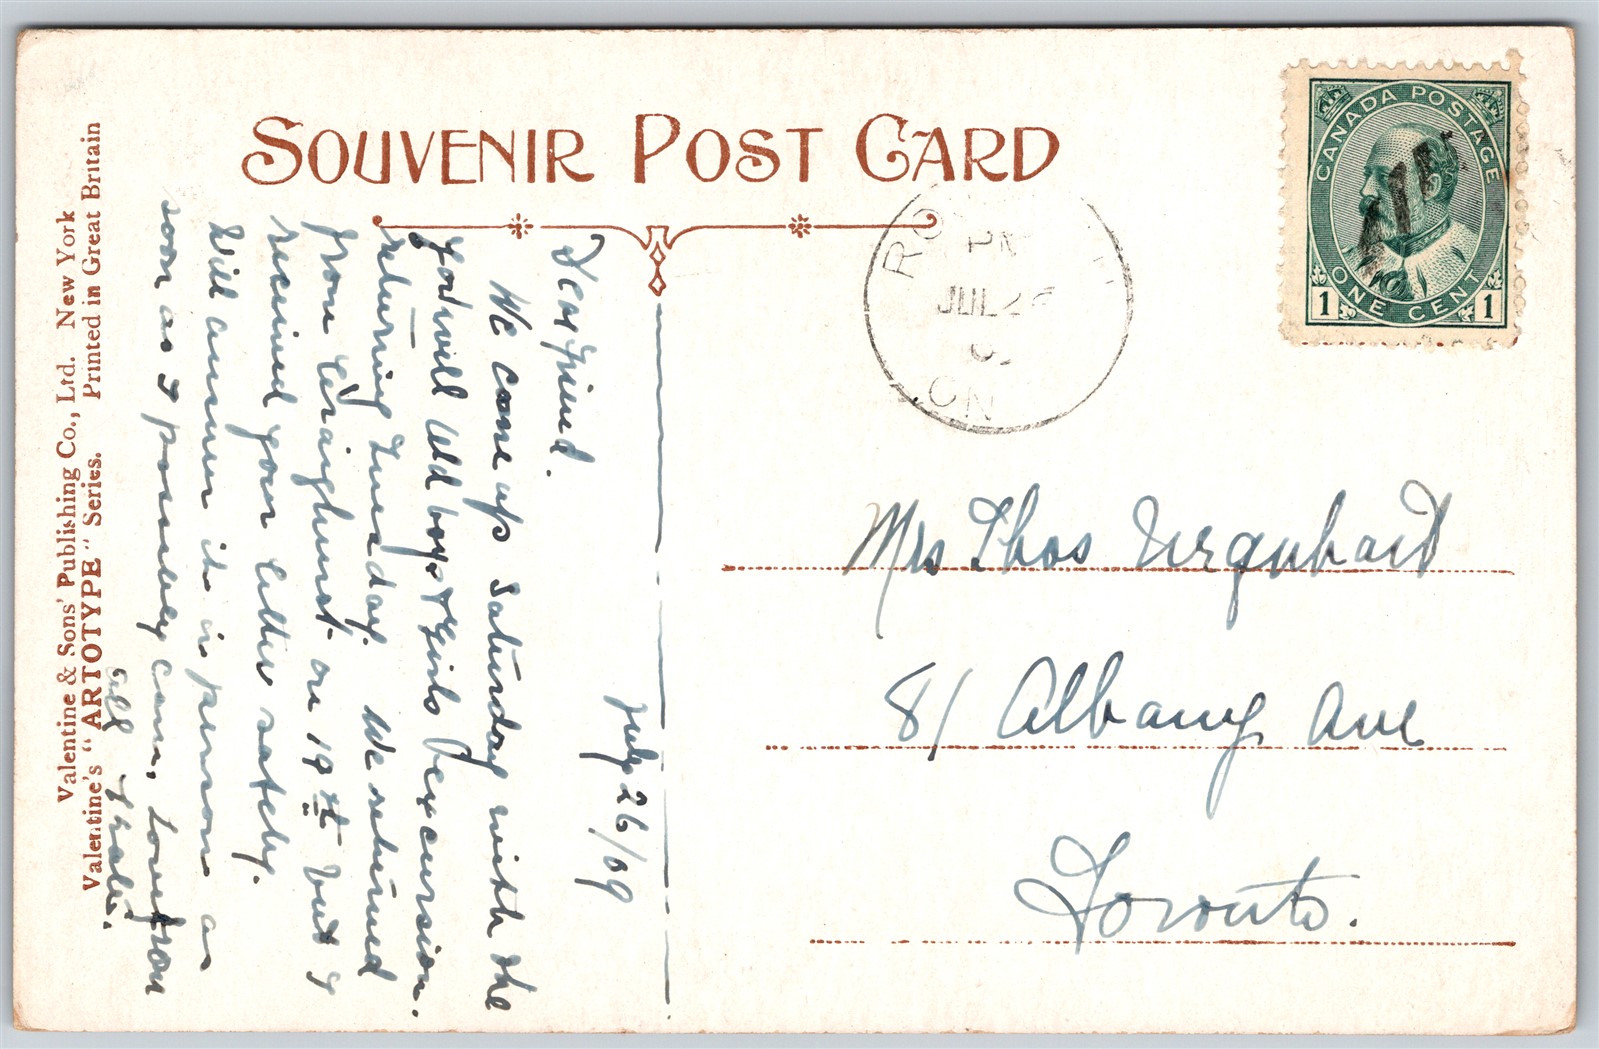 SOUVENIR POST CARD
CANADA POSTAGE
ONE CENT
1 1
JUL 26
ON
July 26/09
Dear Friend.
We came up Saturday with the
Gordwill Old boys & Girls Excursion.
returning Tuesday. We returned
from Craighurst on 19th but I
received your letter safely.
Will answer it in person as
soon as I possibly can, Love from
all Thalia.
Mrs Thos Urquhart
81 Albany Ave
Toronto.
Valentine & Sons' Publishing Co., Ltd. New York
Valentine's "ARTOTYPE" Series. Printed in Great Britain